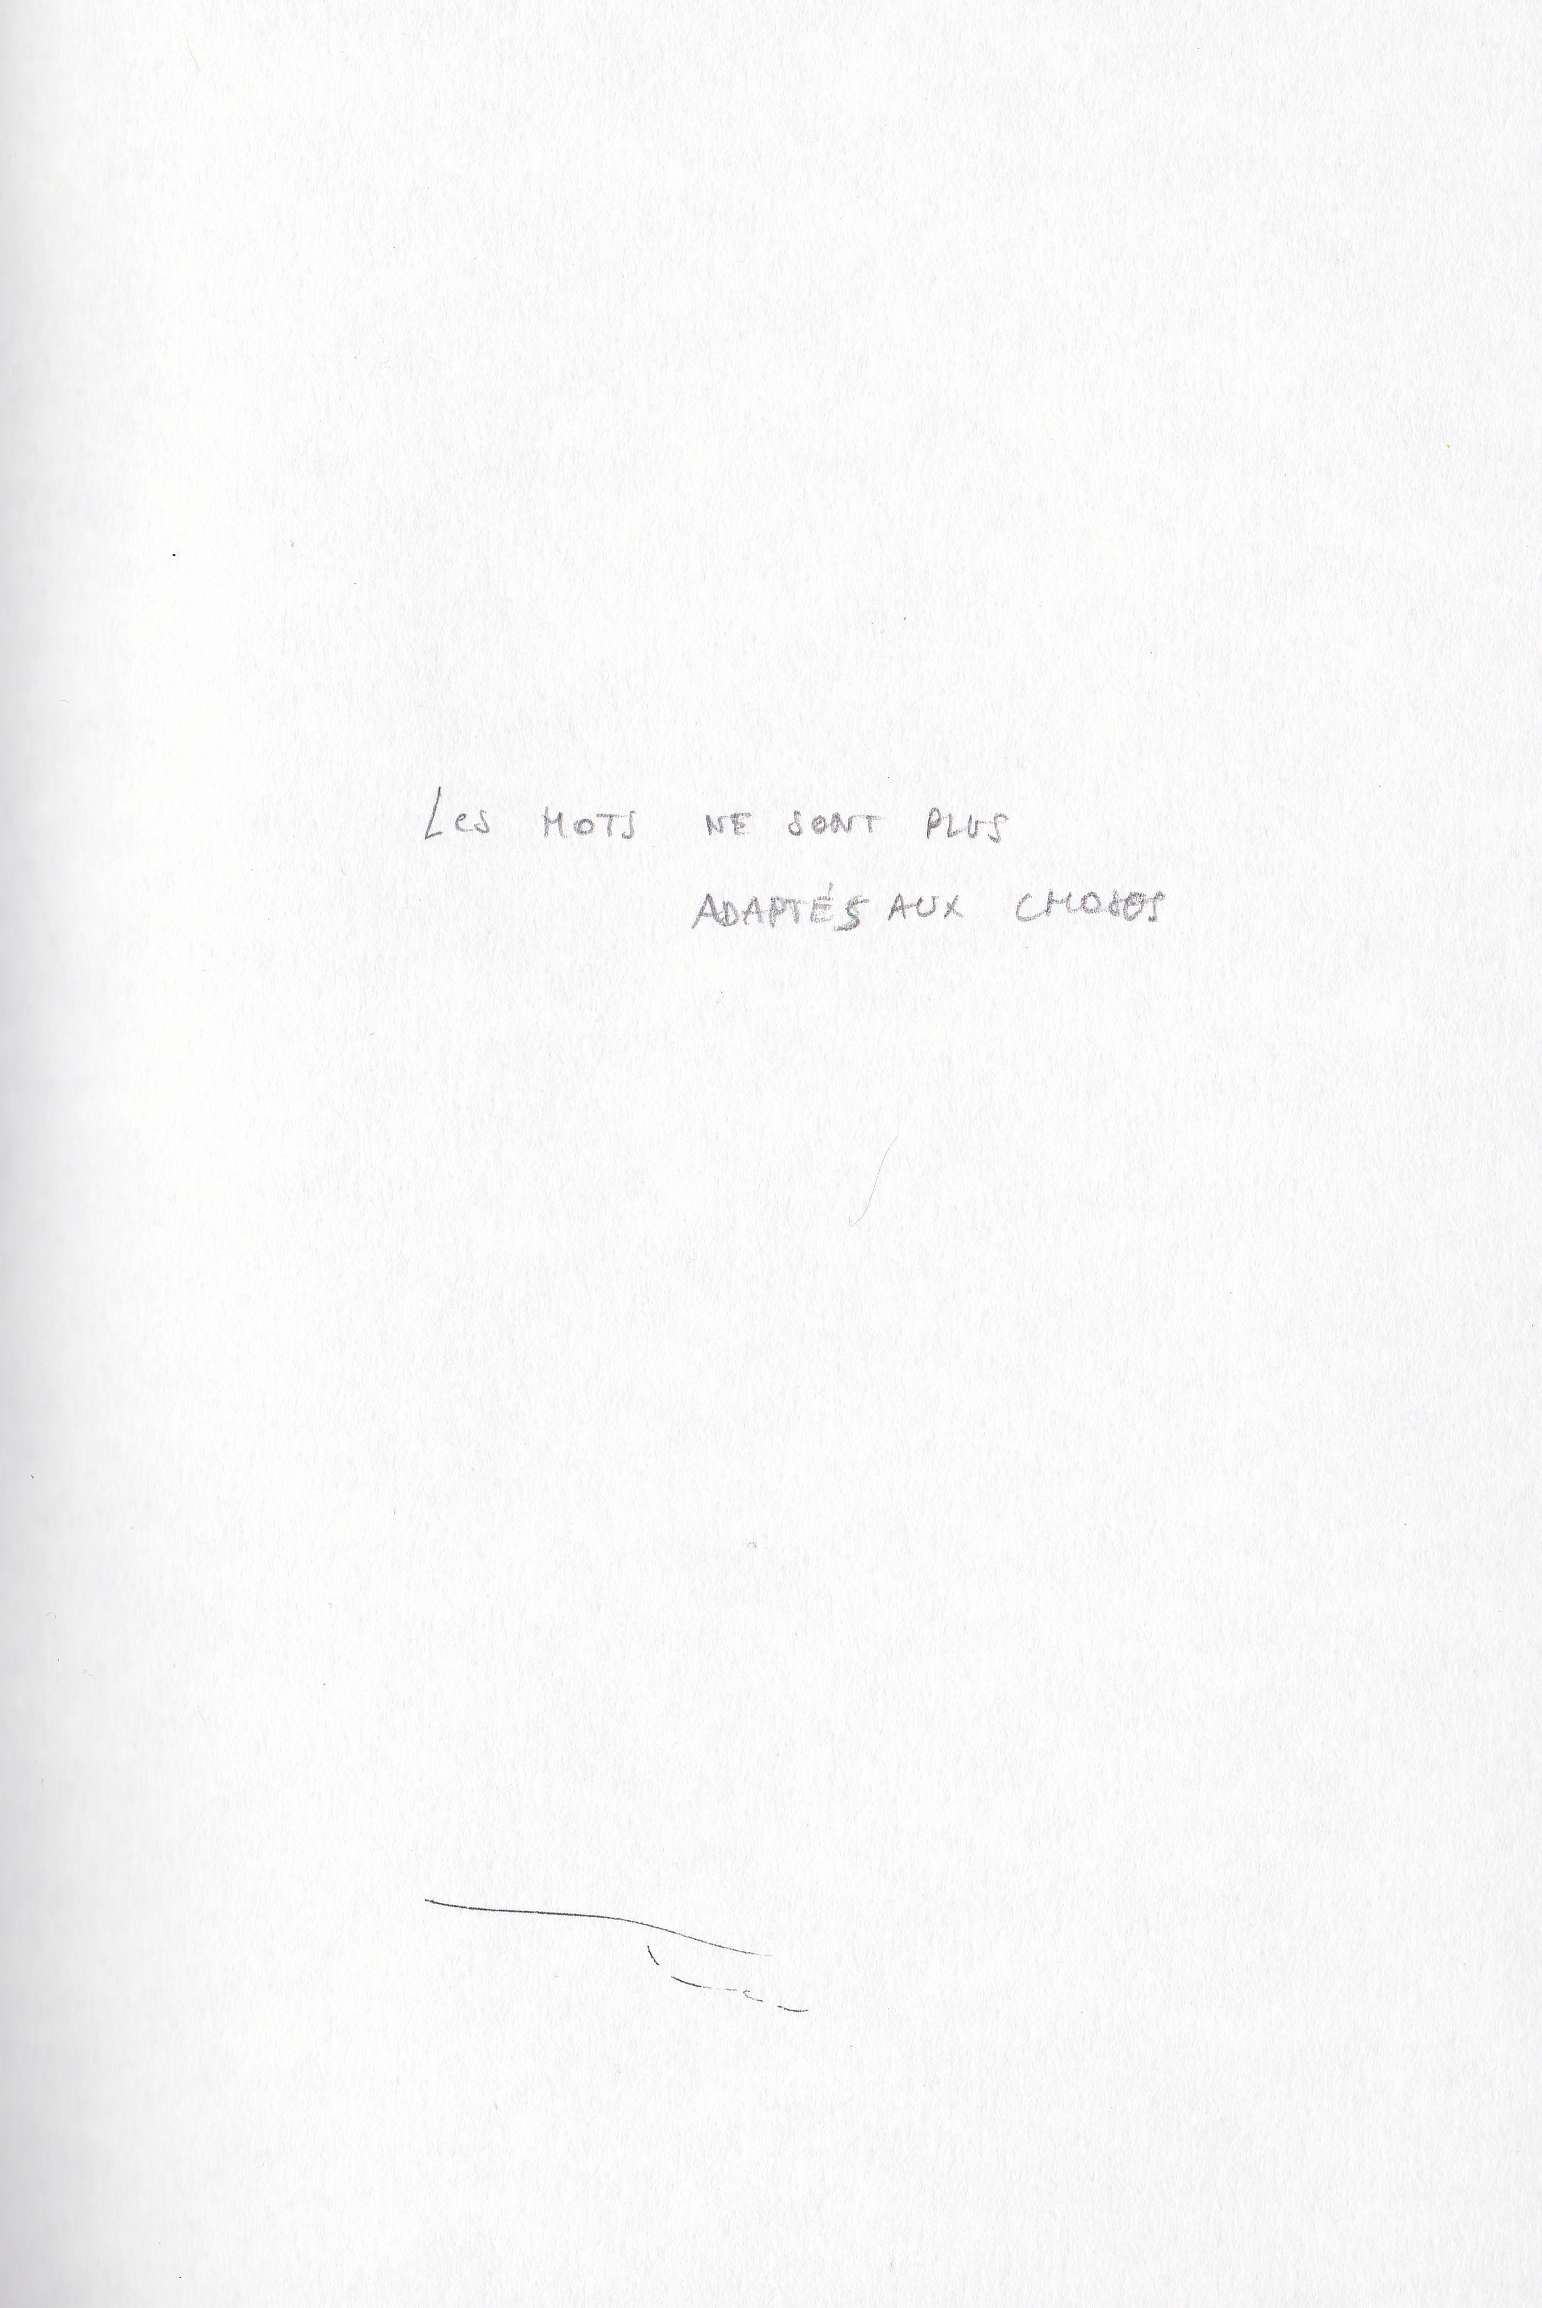 Les MOTS NE SONT PLUS
ADAPTÉS AUX CHOSES